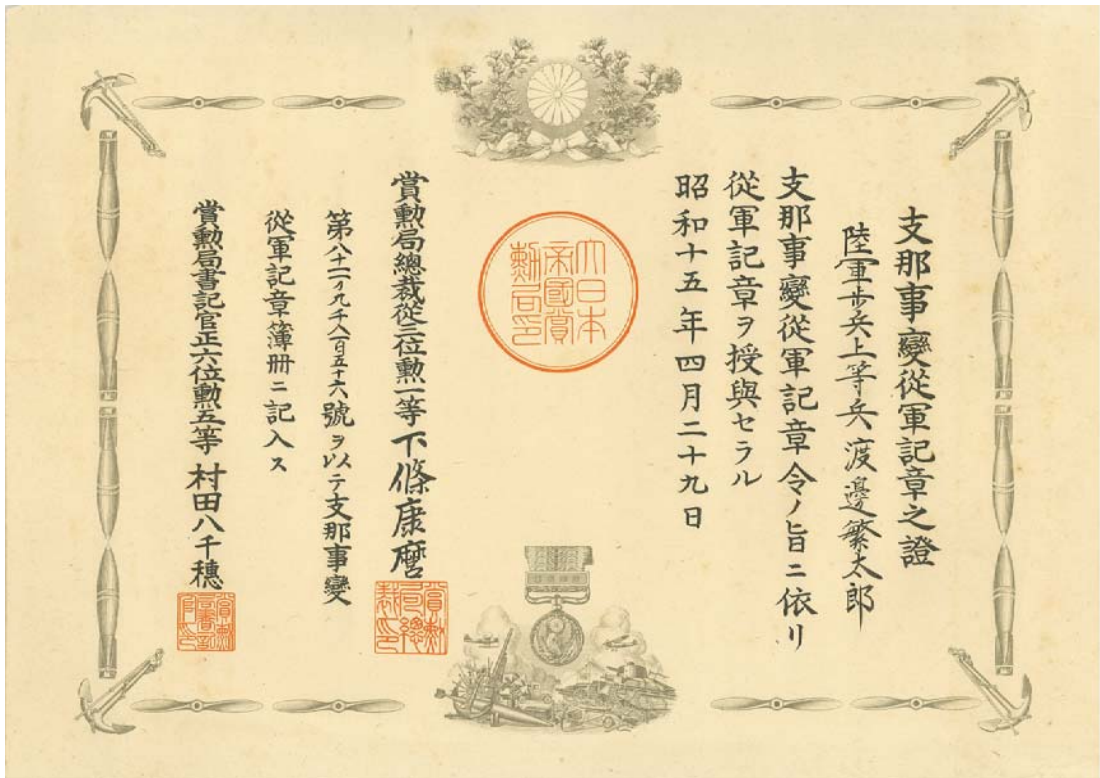 支那事變從軍記章之證
陸軍歩兵上等兵渡邊繁太郎
支那事變從軍記章令ノ旨ニ依リ
從軍記章ヲ授與セラル
昭和十五年四月二十九日
大日本
帝國賞
勳局印
賞勳局總裁從三位勳一等下條康麿
賞勳
局總
裁印
第九千八百五十六號ヲ以テ支那事變
從軍記章簿冊ニ記入ス
賞勳局書記官正六位勳五等村田八千穗